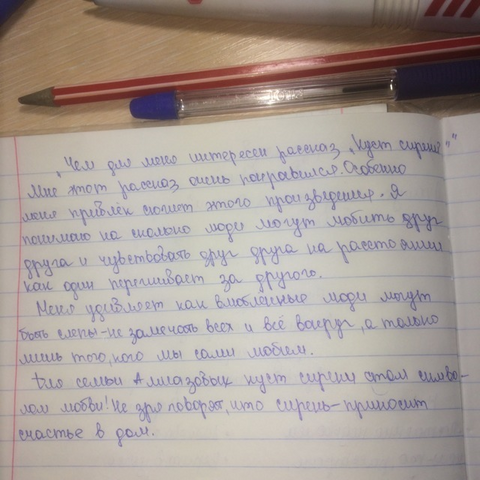 „Чем для меня интересен рассказ „Куст сирени"."
Мне этот рассказ очень понравился. Особенно
меня привлёк сюжет этого произведения. Я
понимаю на сколько люди могут любить друг
друга и чувствовать друг друга на расстоянии
как один переживает за другого.
Меня удивляет как влюбленные люди могут
быть слепы-не замечать всех и всё вокруг, а только
лишь того, кого мы сами любим.
Для семьи Алмазовых куст сирени стал симво-
лом любви! Не зря говорят, что сирень-приносит
счастье в дом.